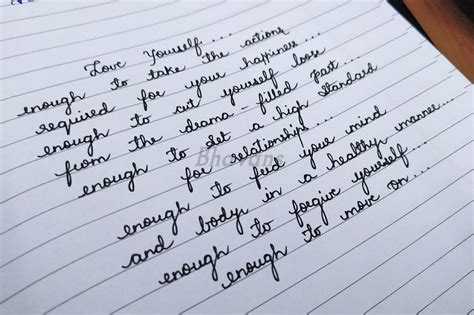 Love Yourself....
enough to take the actions
required for your happiness...
enough to cut yourself loose
from the drama-filled past...
enough to set a high standard
for relationships...
Bhavans
enough to feed your mind
and body in a healthy manner...
enough to forgive yourself...
enough to move on...